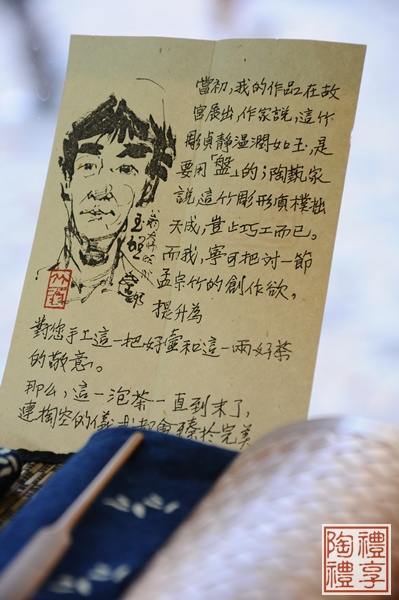 當初，我的作品在故
宮展出，作家說，這竹
彫貞靜溫潤如玉，是
要用「盤」的；陶藝家
說這竹彫形質樸拙
天成，豈止巧工而已。
而我，寧可把对一節
孟宗竹的創作欲，
提升為
對您手工這一把好壺和這一兩好茶
的敬意。
那么，這一泡茶一直到末了，
連掏空的儀式都會臻於完美
陶禮
禮享